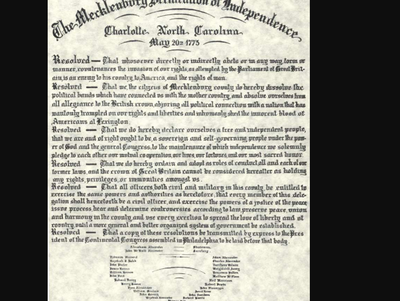 The Mecklenburg Declaration of Independence,
Charlotte, North Carolina.
May 20th 1775
Resolved — That whosoever directly or indirectly abets or in any way form or
manner countenances the invasion of our rights, as attempted by the Parliament of Great Brit-
ain, is an enemy to his country to America, and the rights of man.
Resolved — That we the citizens of Mecklenburg county do hereby dissolve the
political bands which have connected us with the mother country, and absolve ourselves from
all allegiance to the British crown, abjuring all political connection with a nation that has
wantonly trampled on our rights and liberties and inhumanly shed the innocent blood of
Americans at Lexington.
Resolved — That we do hereby declare ourselves a free and independent people,
that we are and of right ought to be a sovereign and self-governing people under the pow-
er of God and the general Congress, to the maintenance of which independence we solemnly
pledge to each other our mutual co-operation, our lives, our fortunes, and our most sacred honor.
Resolved — That we do hereby ordain and adopt as rules of conduct all and each of our
former laws, and the crown of Great Britain cannot be considered hereafter as holding
any rights, privileges, or immunities amongst us.
Resolved — That all officers both civil and military in this county, be entitled to
exercise the same powers and authorities as heretofore, that every member of this dele-
gation shall henceforth be a civil officer, and exercise the powers of a justice of the peace,
issue process hear and determine controversies according to law, preserve peace, union
and harmony in the county and use every exertion to spread the love of liberty and of
country, until a more general and better organized system of government be established.
Resolved — That a copy of these resolutions be transmitted by express to the Pres-
ident of the Continental Congress assembled in Philadelphia to be laid before that body.